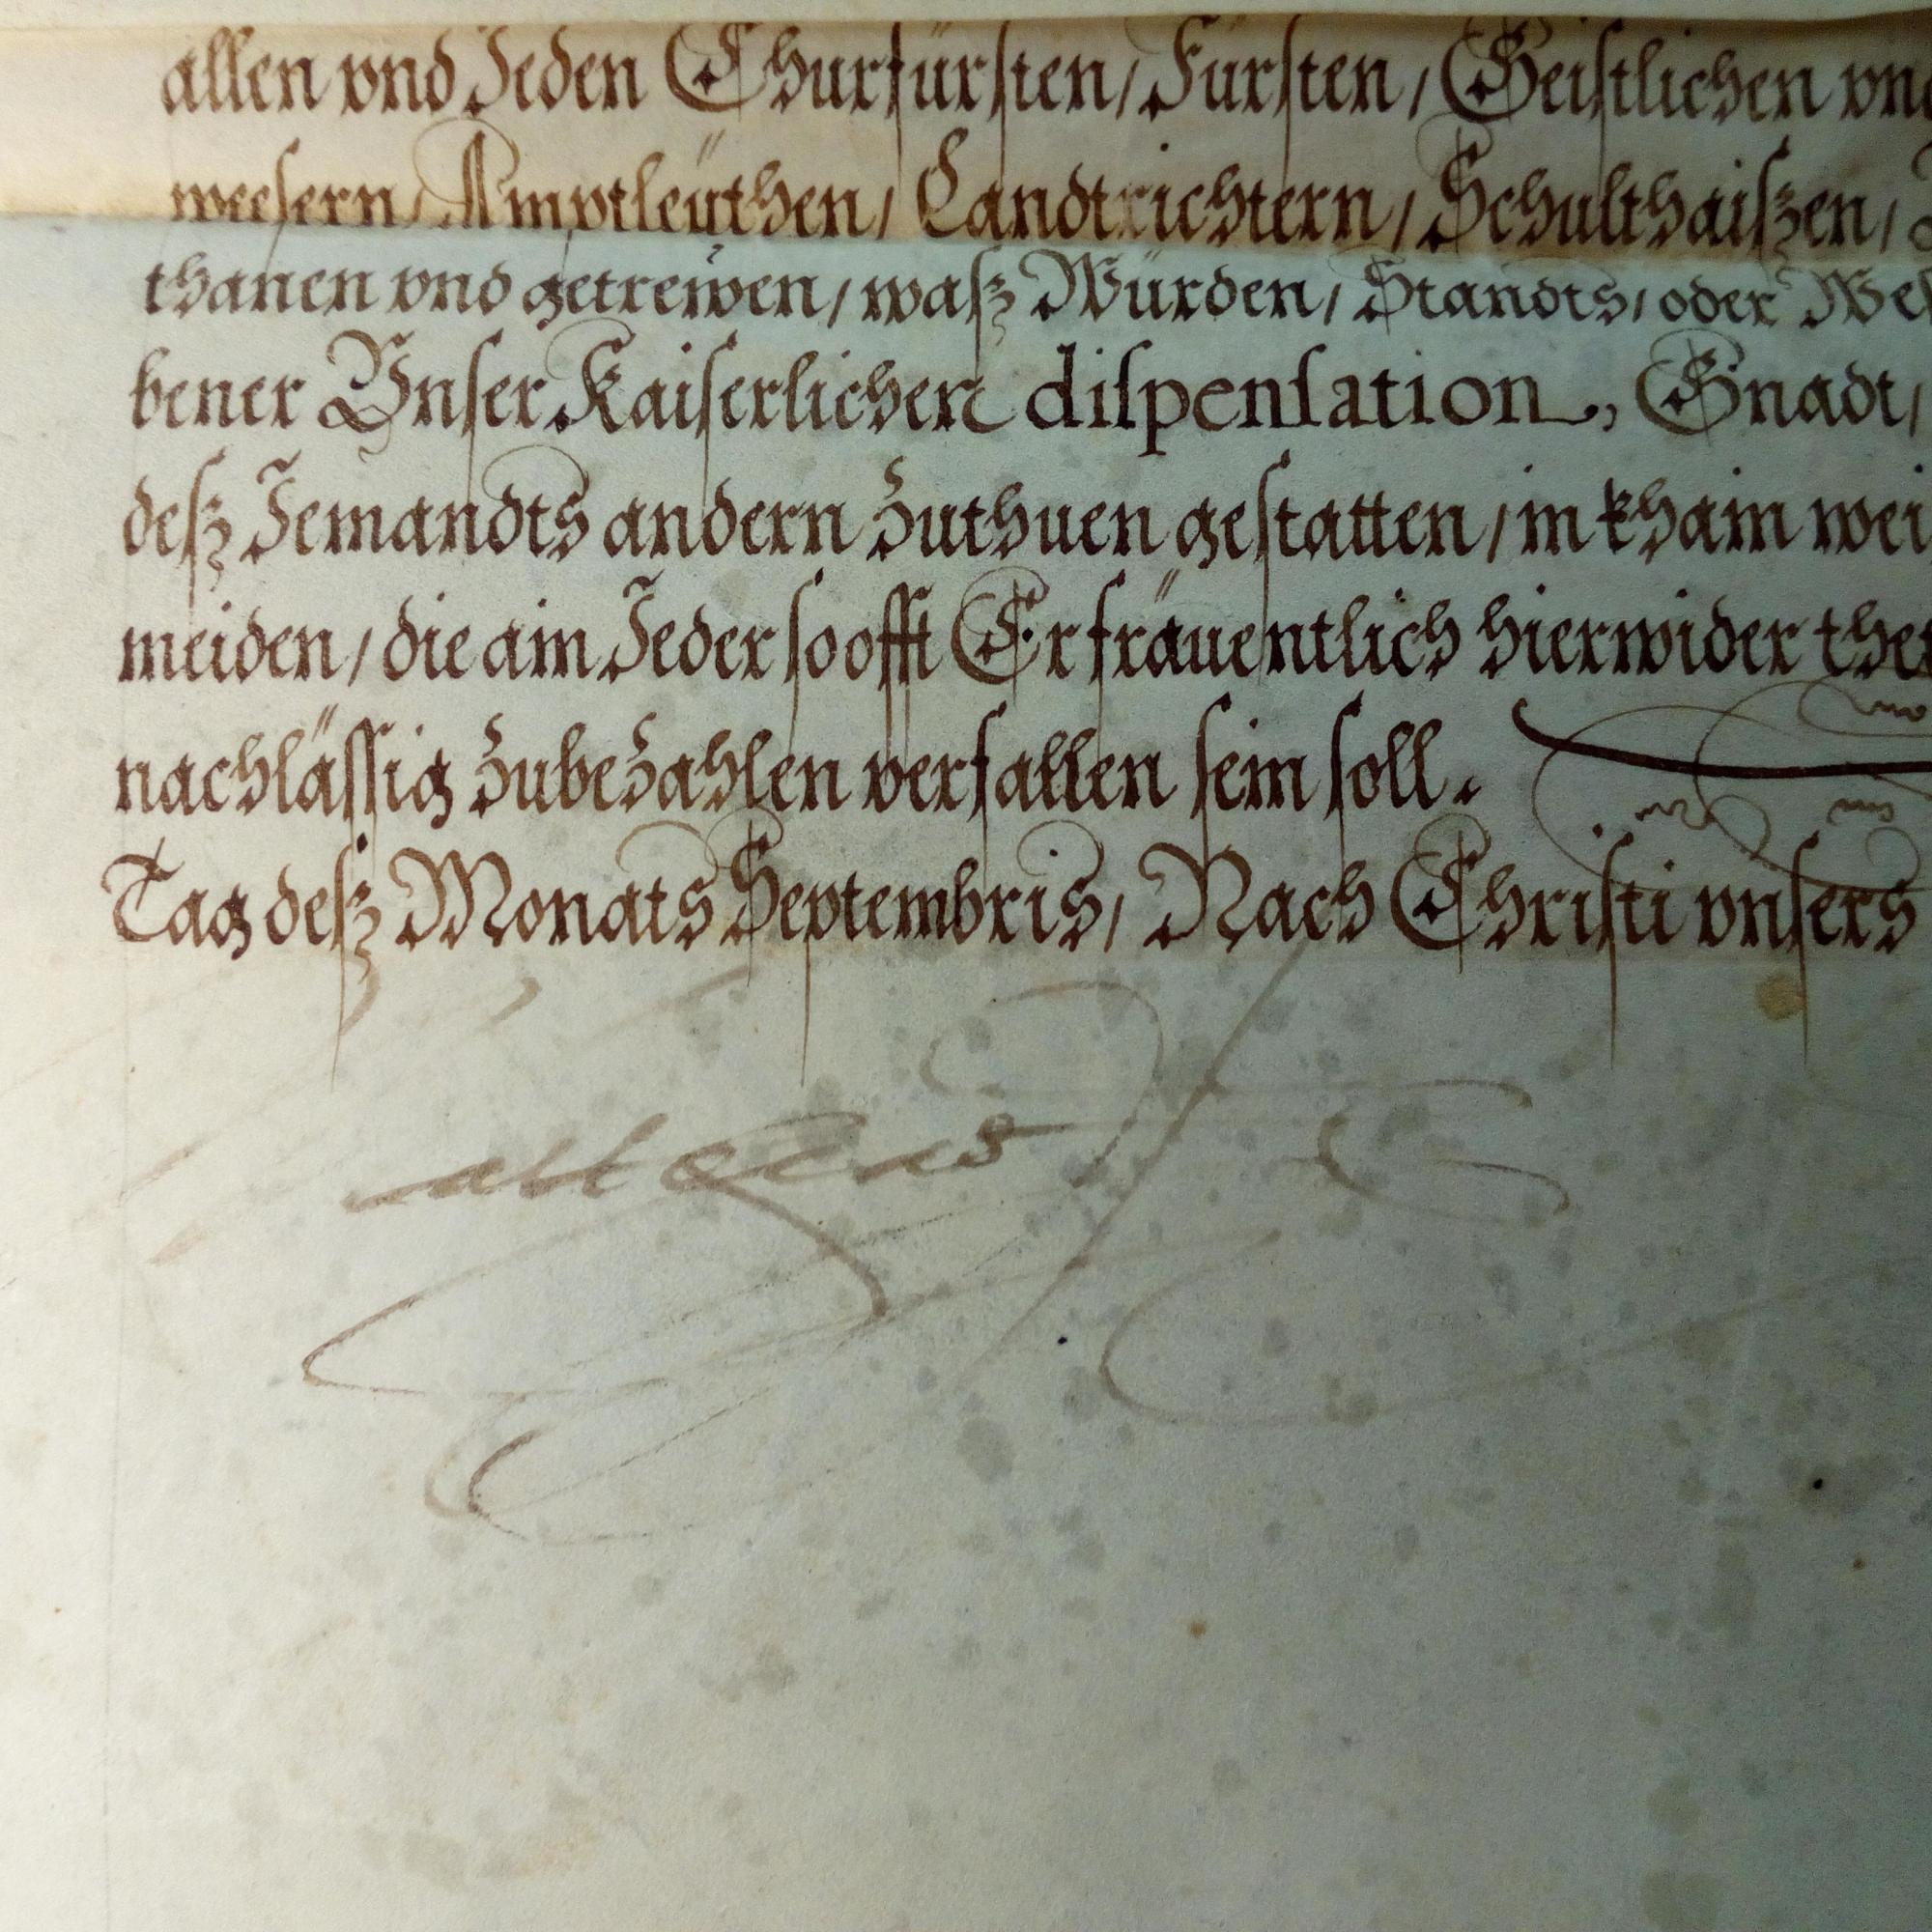 allen vnd Jeden Churfürsten / Fürsten / Geistlichen vn
weesern / Amptleüthen / Landtrichtern / Schulthaißen /
thanen vnd getrewen / waß Würden / Standts / oder We
bener Vnser Kaiserlichen dispensation, Gnadt /
deß Jemandts andern Zuthuen gestatten / in khain wei
meiden / die ain Jeder so offt Er fräuentlich hierwider the
nachlässig Zubezahlen verfallen sein soll.
Tag deß Monats Septembris / Nach Christi vnsers